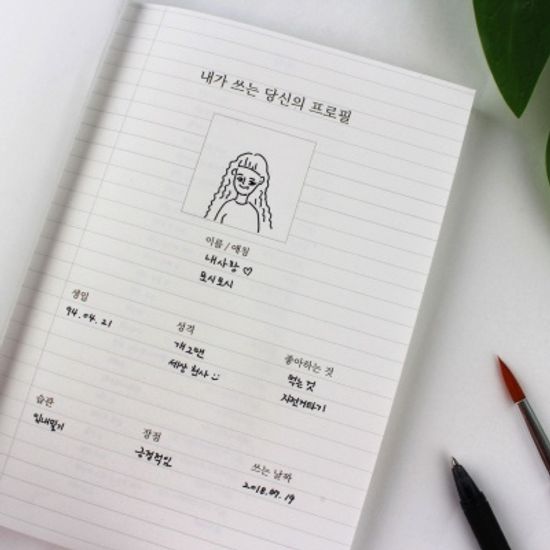 내가 쓰는 당신의 프로필
이름 / 애칭
내사랑 ♡
모시모시
생일
94. 04. 21
성격
개그맨
세상 천사 :)
좋아하는 것
먹는 것
자전거타기
습관
입내밀기
장점
긍정적임
쓰는 날짜
2018.07.19